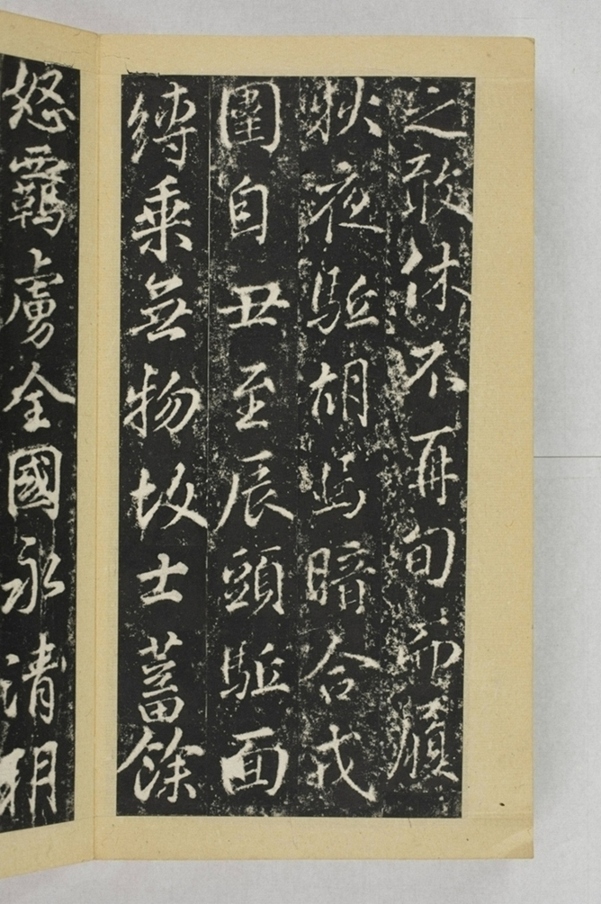 之敢休不再旬而
狄夜駈胡馬暗合戎
圍自丑至辰頭駈面
縛乘無物故士蓄餘
怒羈虜全國永清朔